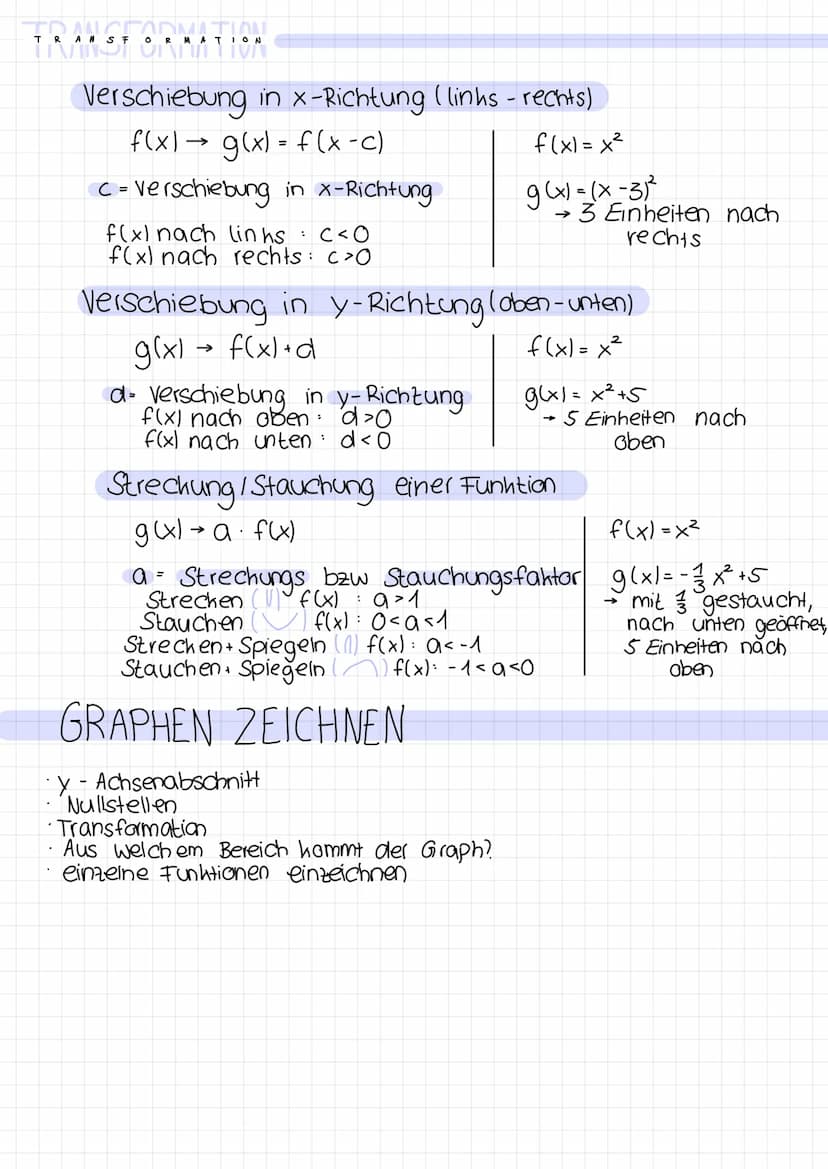 TRANSFORMATION
Verschiebung in x-Richtung (links - rechts)
f(x) → g(x) = f(x - c)
f(x) = x²
c = Verschiebung in x-Richtung
g(x) = (x - 3)²
→ 3 Einheiten nach
rechts
f(x) nach links : c < 0
f(x) nach rechts : c > 0
Verschiebung in y-Richtung (oben-unten)
g(x) → f(x) + d
f(x) = x²
d = Verschiebung in y-Richtung
f(x) nach oben : d > 0
f(x) nach unten : d < 0
g(x) = x² + 5
→ 5 Einheiten nach
oben
Streckung / Stauchung einer Funktion
g(x) → a · f(x)
f(x) = x²
a = Streckungs bzw Stauchungsfaktor
Strecken ( ) f(x) : a > 1
Stauchen ( ) f(x) : 0 < a < 1
Strecken + Spiegeln ( ) f(x) : a < -1
Stauchen + Spiegeln ( ) f(x) : -1 < a < 0
g(x) = - 1/3 x² + 5
→ mit 1/3 gestaucht,
nach unten geöffnet,
5 Einheiten nach
oben
GRAPHEN ZEICHNEN
· y - Achsenabschnitt
· Nullstellen
· Transformation
· Aus welchem Bereich kommt der Graph?
· einzelne Funktionen einzeichnen